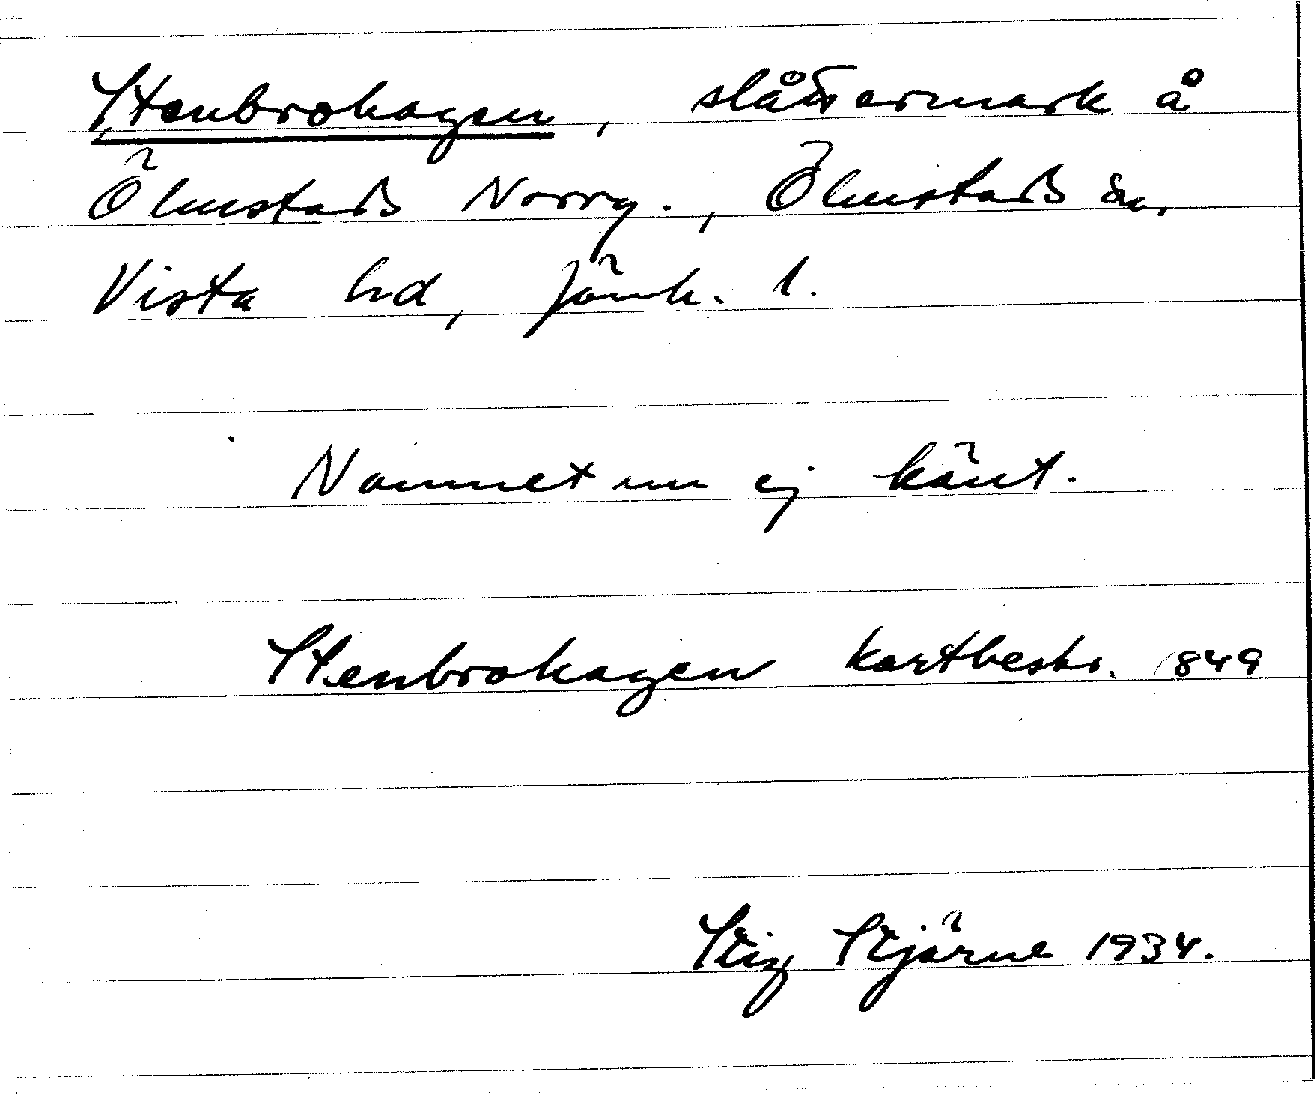 Stenbrohagen, slåttermark å
Ölmstads Norrg., Ölmstads sn,
Vista hd, Jönk. l.
Namnet nu ej känt.
Stenbrohagen kartbeskr. 1849
Stig Stjärne 1934.